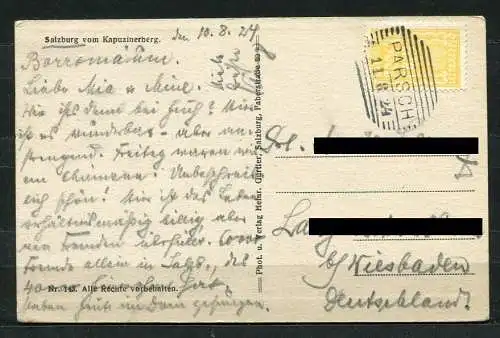 Salzburg vom Kapuzinerberg.
den 10.8.24
Borromäum.
Liebe Mia & Mine.
Wie ist's denn bei Euch? Hier
ist es wunderbar - aber an-
strengend. Freitag waren wir
am Chiemsee. Unbeschreib-
lich schön! Hier ist das Leben
verhältnismäßig billig, aber
von Fremden überfüllt. 60000
Fremde allein in Salzb., des
40
haben heute im Dom gesungen.
Nr. 143. Alle Rechte vorbehalten.
Phot. u. Verlag Heinr. Gürtler, Salzburg, Faberstraße
PARSCH
11.8.24
b/ Wiesbaden
Deutschland.